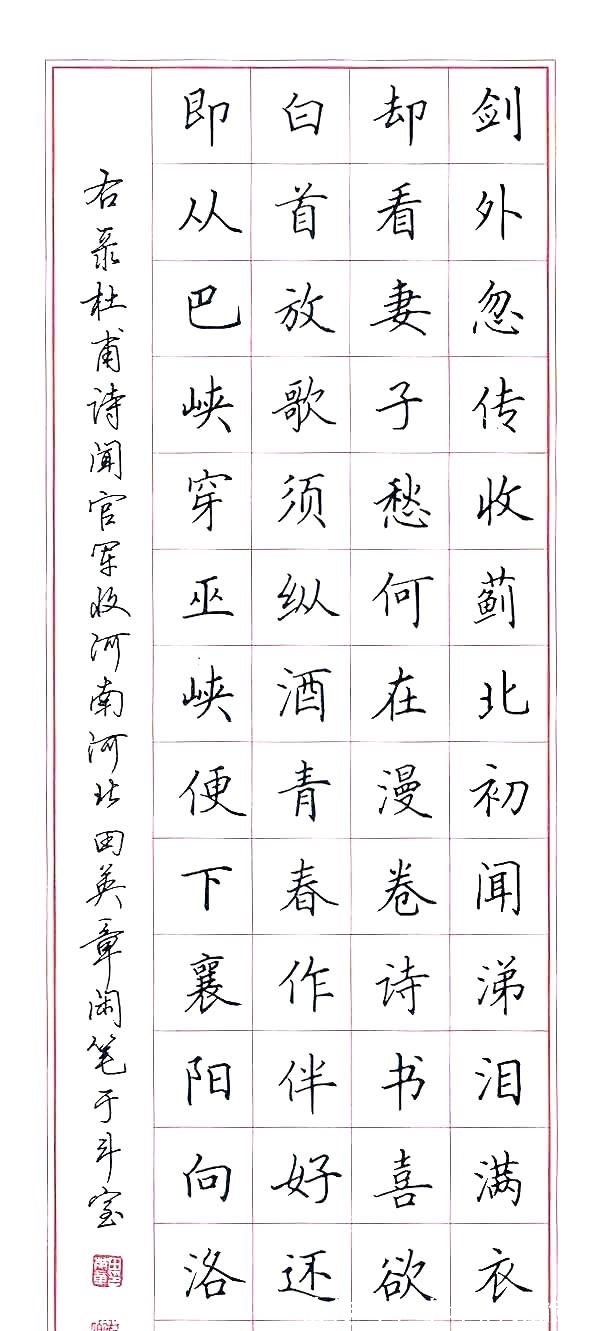 剑外忽传收蓟北初闻涕泪满衣
却看妻子愁何在漫卷诗书喜欲
白首放歌须纵酒青春作伴好还
即从巴峡穿巫峡便下襄阳向洛
右录杜甫诗闻官军收河南河北田英章闲笔于斗室